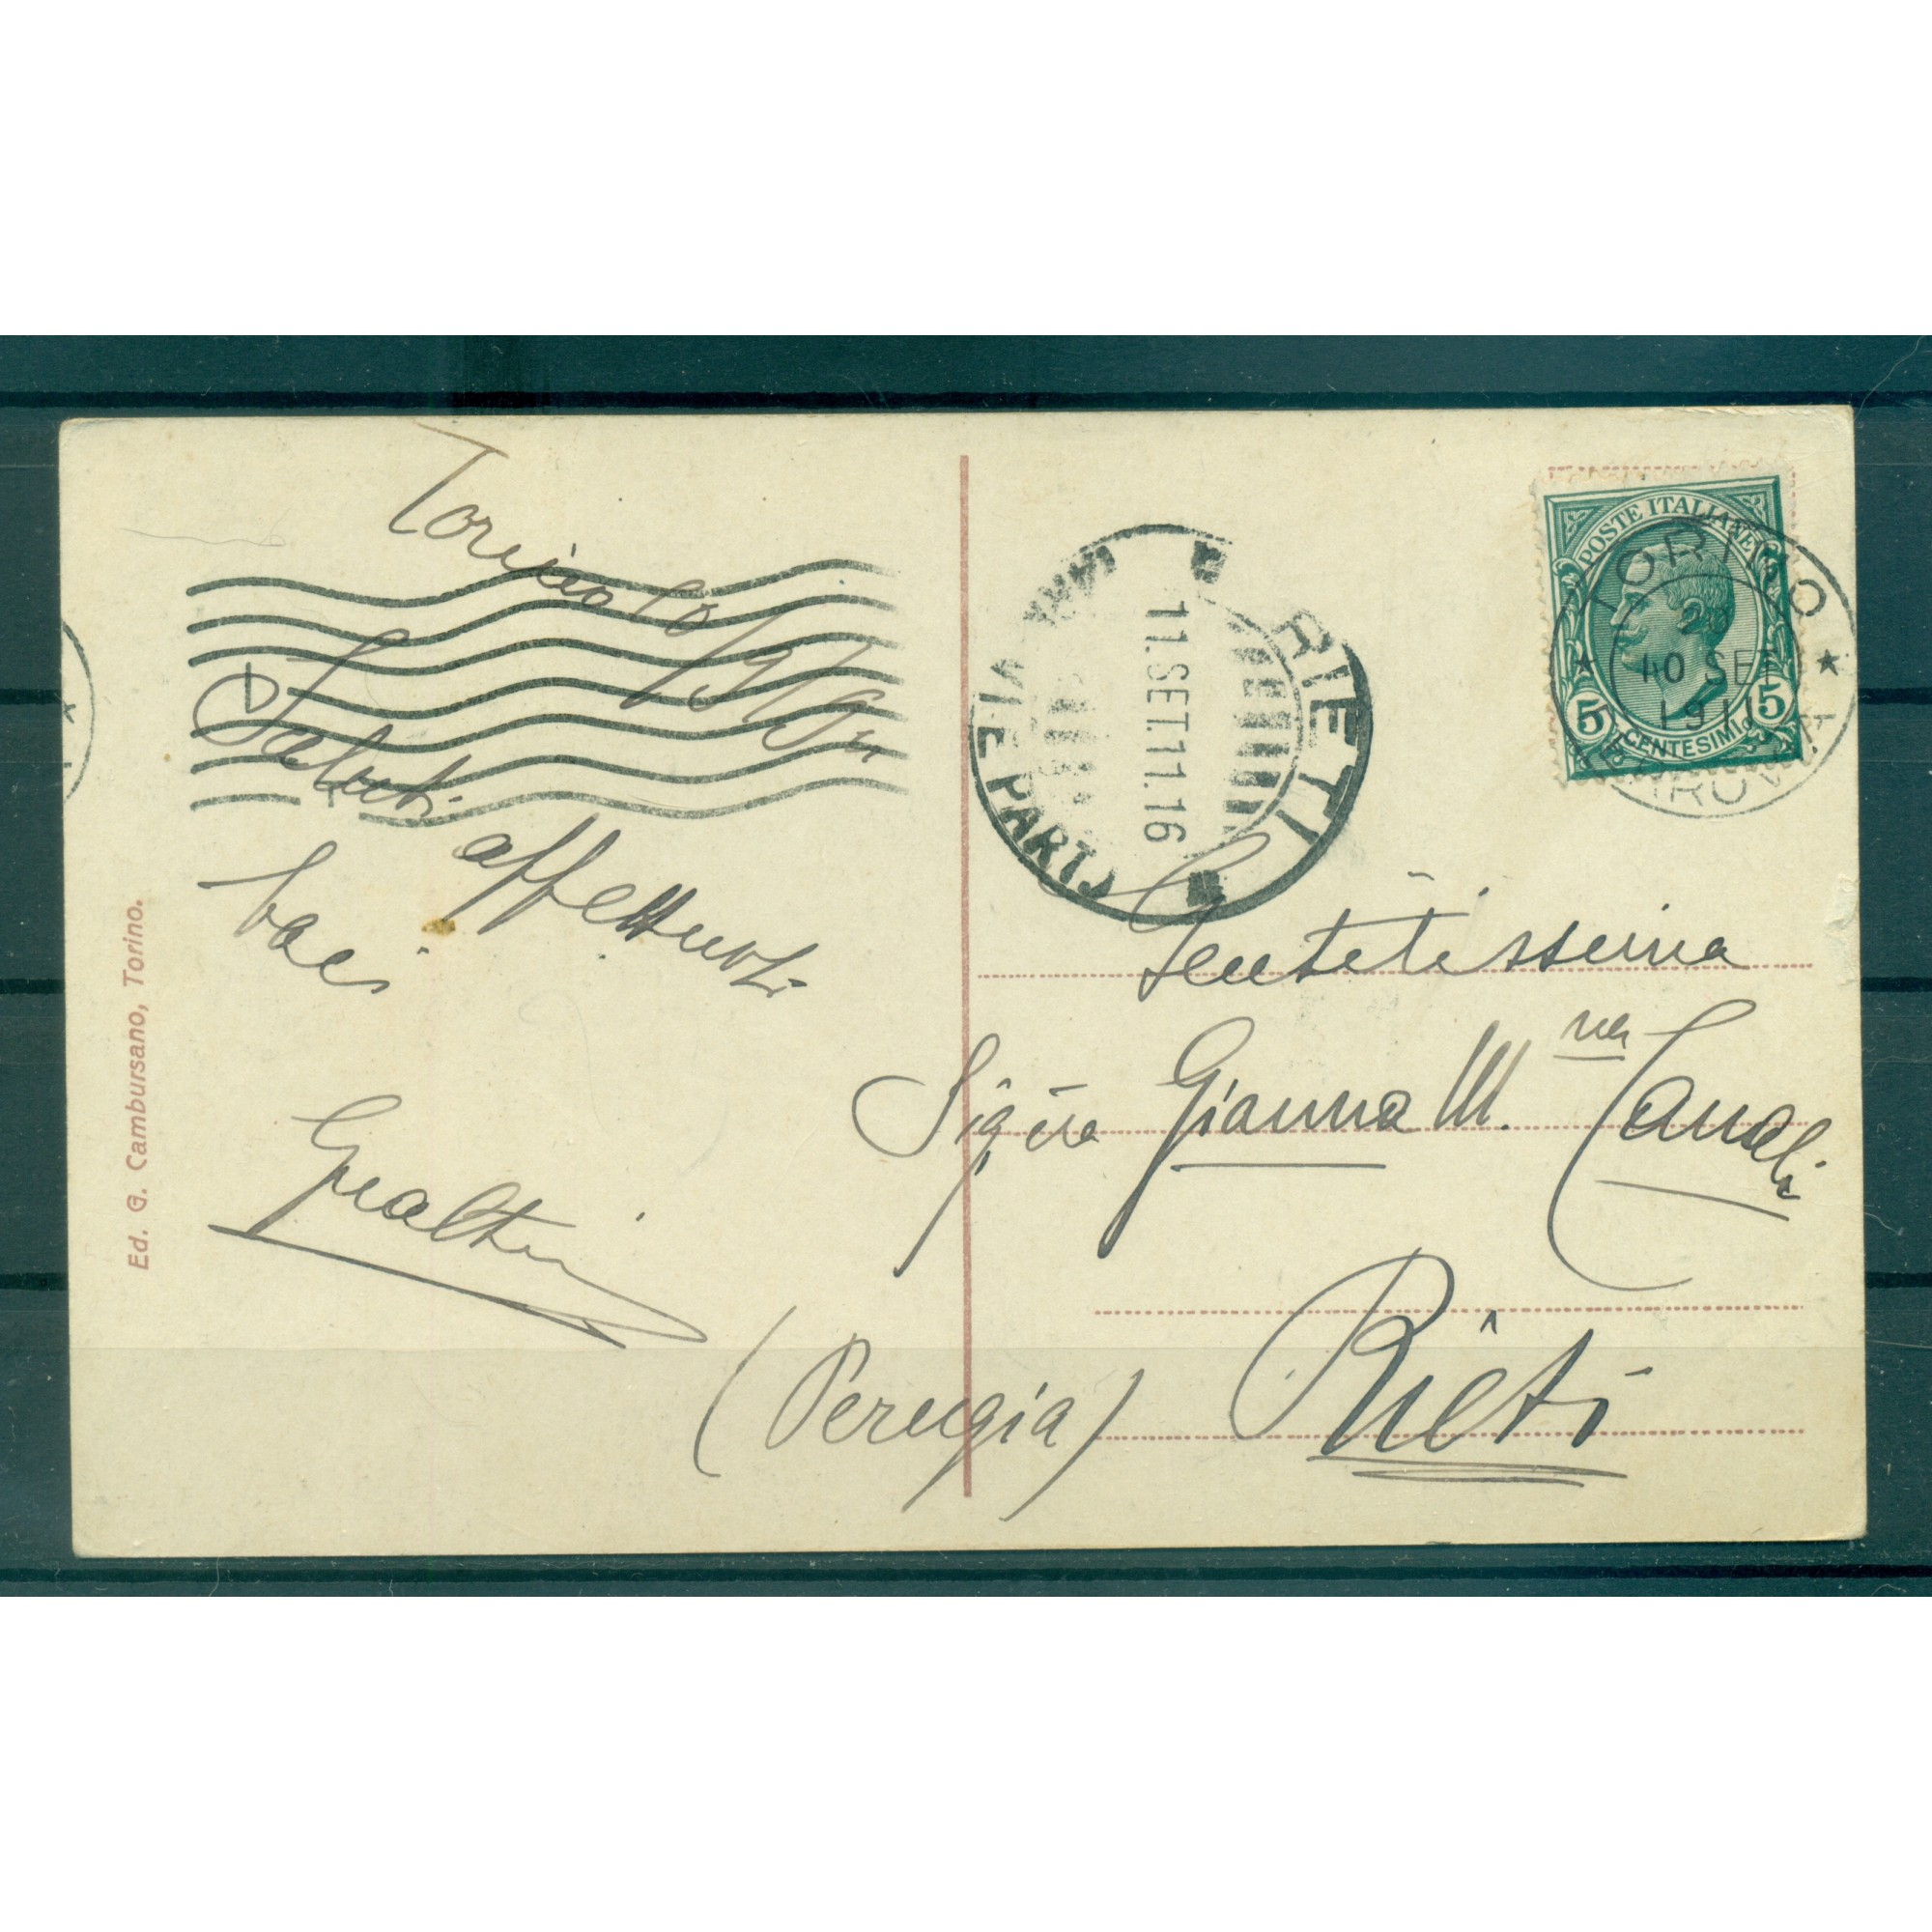 Torino 10/9/911
Saluti affettuosi
baci
Ed. G. Cambursano, Torino.
POSTE ITALIANE
5 CENTESIMI 5
TORINO
20
10 SET
1911
FERROVIA
RIETI
11.SET.11.16
VIE PART
Gentilissima
Sigra Gianna M. Canali
Rieti
(Perugia)